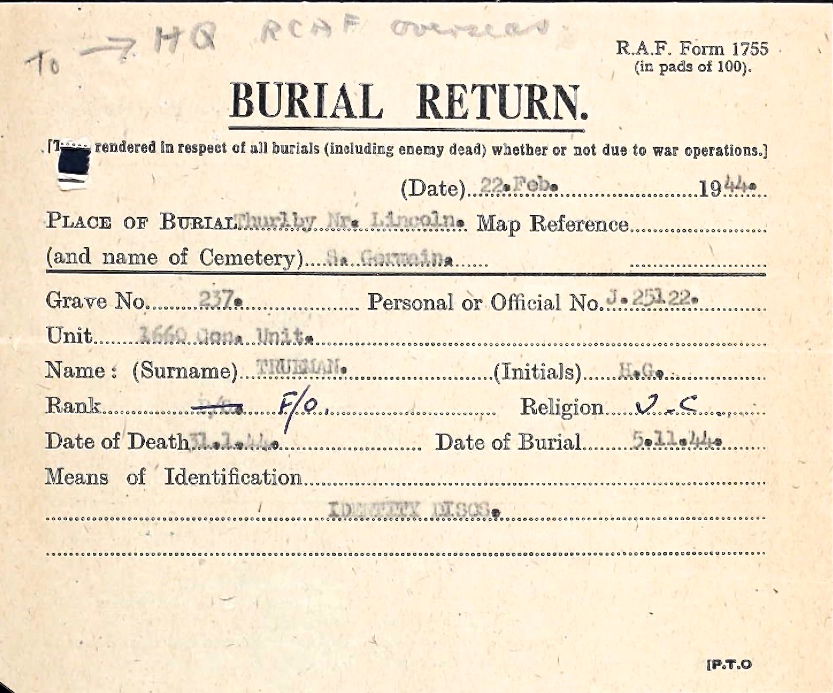 To → HQ RCAF overseas
R.A.F. Form 1755
(in pads of 100).
BURIAL RETURN.
rendered in respect of all burials (including enemy dead) whether or not due to war operations.]
(Date) 22.Feb. 1944.
PLACE OF BURIAL Thurlby Nr. Lincoln. Map Reference
(and name of Cemetery) S. Germain.
Grave No. 237. Personal or Official No. J.25122.
Unit 1660 Con. Unit.
Name: (Surname) TRUEMAN. (Initials) H.G.
Rank F/O. Religion U.C.
Date of Death 31.1.44. Date of Burial 5.11.44.
Means of Identification
IDENTITY DISCS.
[P.T.O